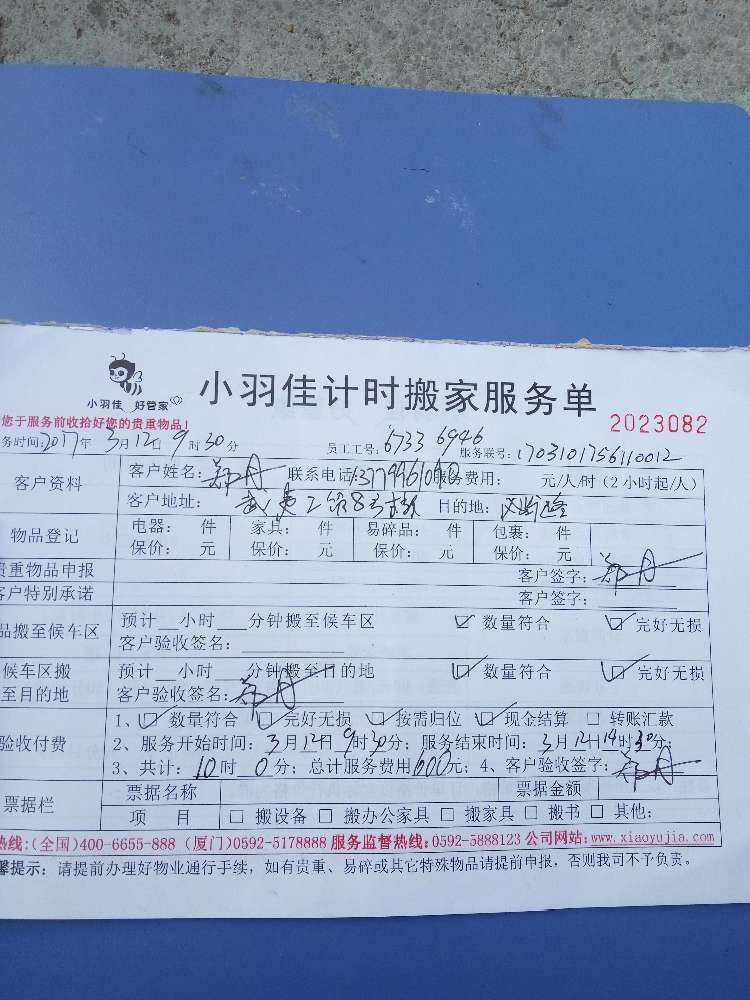 小羽佳 好管家
小羽佳计时搬家服务单
您于服务前收拾好您的贵重物品!
2023082
务时间:2017年3月12日9时30分 员工工号:6733 6946 服务联号:1703101756110012
客户资料 客户姓名:郑丹 联系电话: 服务费用: 元/人/时(2小时起/人)
客户地址: 目的地:
物品登记 电器: 件 家具: 件 易碎品: 件 包裹: 件
保价: 元 保价: 元 保价: 元 保价: 元
贵重物品申报 客户签字:郑丹
客户特别承诺 客户签字:
品搬至候车区 预计__小时___分钟搬至候车区 ☑ 数量符合 ☑ 完好无损
客户验收签名:
候车区搬至目的地 预计__小时___分钟搬至目的地 ☑ 数量符合 ☑ 完好无损
客户验收签名:郑丹
验收付费 1、☑ 数量符合 ☑ 完好无损 ☑ 按需归位 ☑ 现金结算 □ 转账汇款
2、服务开始时间:3月12日9时30分;服务结束时间:3月12日14时30分;
3、共计:10时0分;总计服务费用600元;4、客户验收签字:郑丹
票据栏 票据名称 票据金额
项 目 □ 搬设备 □ 搬办公家具 □ 搬家具 □ 搬书 □ 其他:
热线:(全国)400-6655-888 (厦门)0592-5178888 服务监督热线:0592-5888123 公司网站:www.xiaoyujia.com
馨提示:请提前办理好物业通行手续,如有贵重、易碎或其它特殊物品请提前申报,否则我司不予负责。